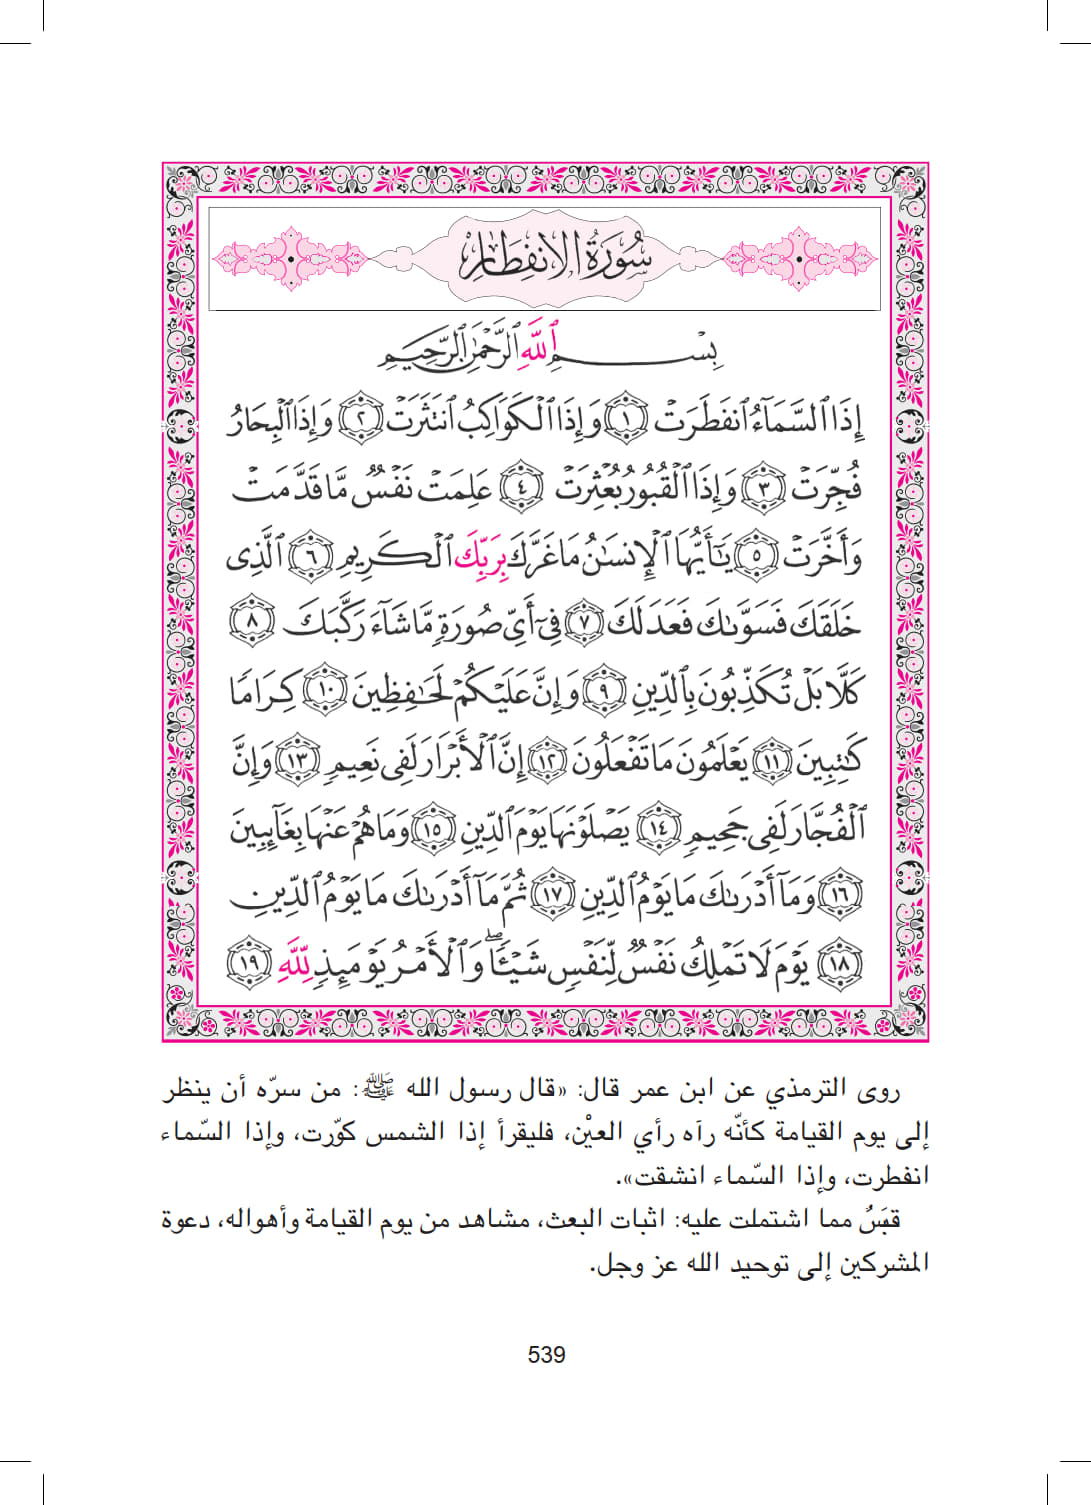 سُورَةُ الِانفِطَارِ
بِسْمِ ٱللَّهِ ٱلرَّحْمَٰنِ ٱلرَّحِيمِ
إِذَا ٱلسَّمَآءُ ٱنفَطَرَتْ ۝١ وَإِذَا ٱلْكَوَاكِبُ ٱنتَثَرَتْ ۝٢ وَإِذَا ٱلْبِحَارُ
فُجِّرَتْ ۝٣ وَإِذَا ٱلْقُبُورُ بُعْثِرَتْ ۝٤ عَلِمَتْ نَفْسٌ مَّا قَدَّمَتْ
وَأَخَّرَتْ ۝٥ يَٰٓأَيُّهَا ٱلْإِنسَٰنُ مَا غَرَّكَ بِرَبِّكَ ٱلْكَرِيمِ ۝٦ ٱلَّذِى
خَلَقَكَ فَسَوَّىٰكَ فَعَدَلَكَ ۝٧ فِىٓ أَىِّ صُورَةٍ مَّا شَآءَ رَكَّبَكَ ۝٨
كَلَّا بَلْ تُكَذِّبُونَ بِٱلدِّينِ ۝٩ وَإِنَّ عَلَيْكُمْ لَحَٰفِظِينَ ۝١٠ كِرَامًا
كَٰتِبِينَ ۝١١ يَعْلَمُونَ مَا تَفْعَلُونَ ۝١٢ إِنَّ ٱلْأَبْرَارَ لَفِى نَعِيمٍ ۝١٣ وَإِنَّ
ٱلْفُجَّارَ لَفِى جَحِيمٍ ۝١٤ يَصْلَوْنَهَا يَوْمَ ٱلدِّينِ ۝١٥ وَمَا هُمْ عَنْهَا بِغَآئِبِينَ
۝١٦ وَمَآ أَدْرَىٰكَ مَا يَوْمُ ٱلدِّينِ ۝١٧ ثُمَّ مَآ أَدْرَىٰكَ مَا يَوْمُ ٱلدِّينِ
۝١٨ يَوْمَ لَا تَمْلِكُ نَفْسٌ لِّنَفْسٍ شَيْـًٔا ۖ وَٱلْأَمْرُ يَوْمَئِذٍ لِّلَّهِ ۝١٩
روى الترمذي عن ابن عمر قال: «قال رسول الله ﷺ: من سرّه أن ينظر
إلى يوم القيامة كأنّه رآه رأي العيْن، فليقرأ إذا الشمس كوّرت، وإذا السّماء
انفطرت، وإذا السّماء انشقت».
قبَسٌ مما اشتملت عليه: اثبات البعث، مشاهد من يوم القيامة وأهواله، دعوة
المشركين إلى توحيد الله عز وجل.
539